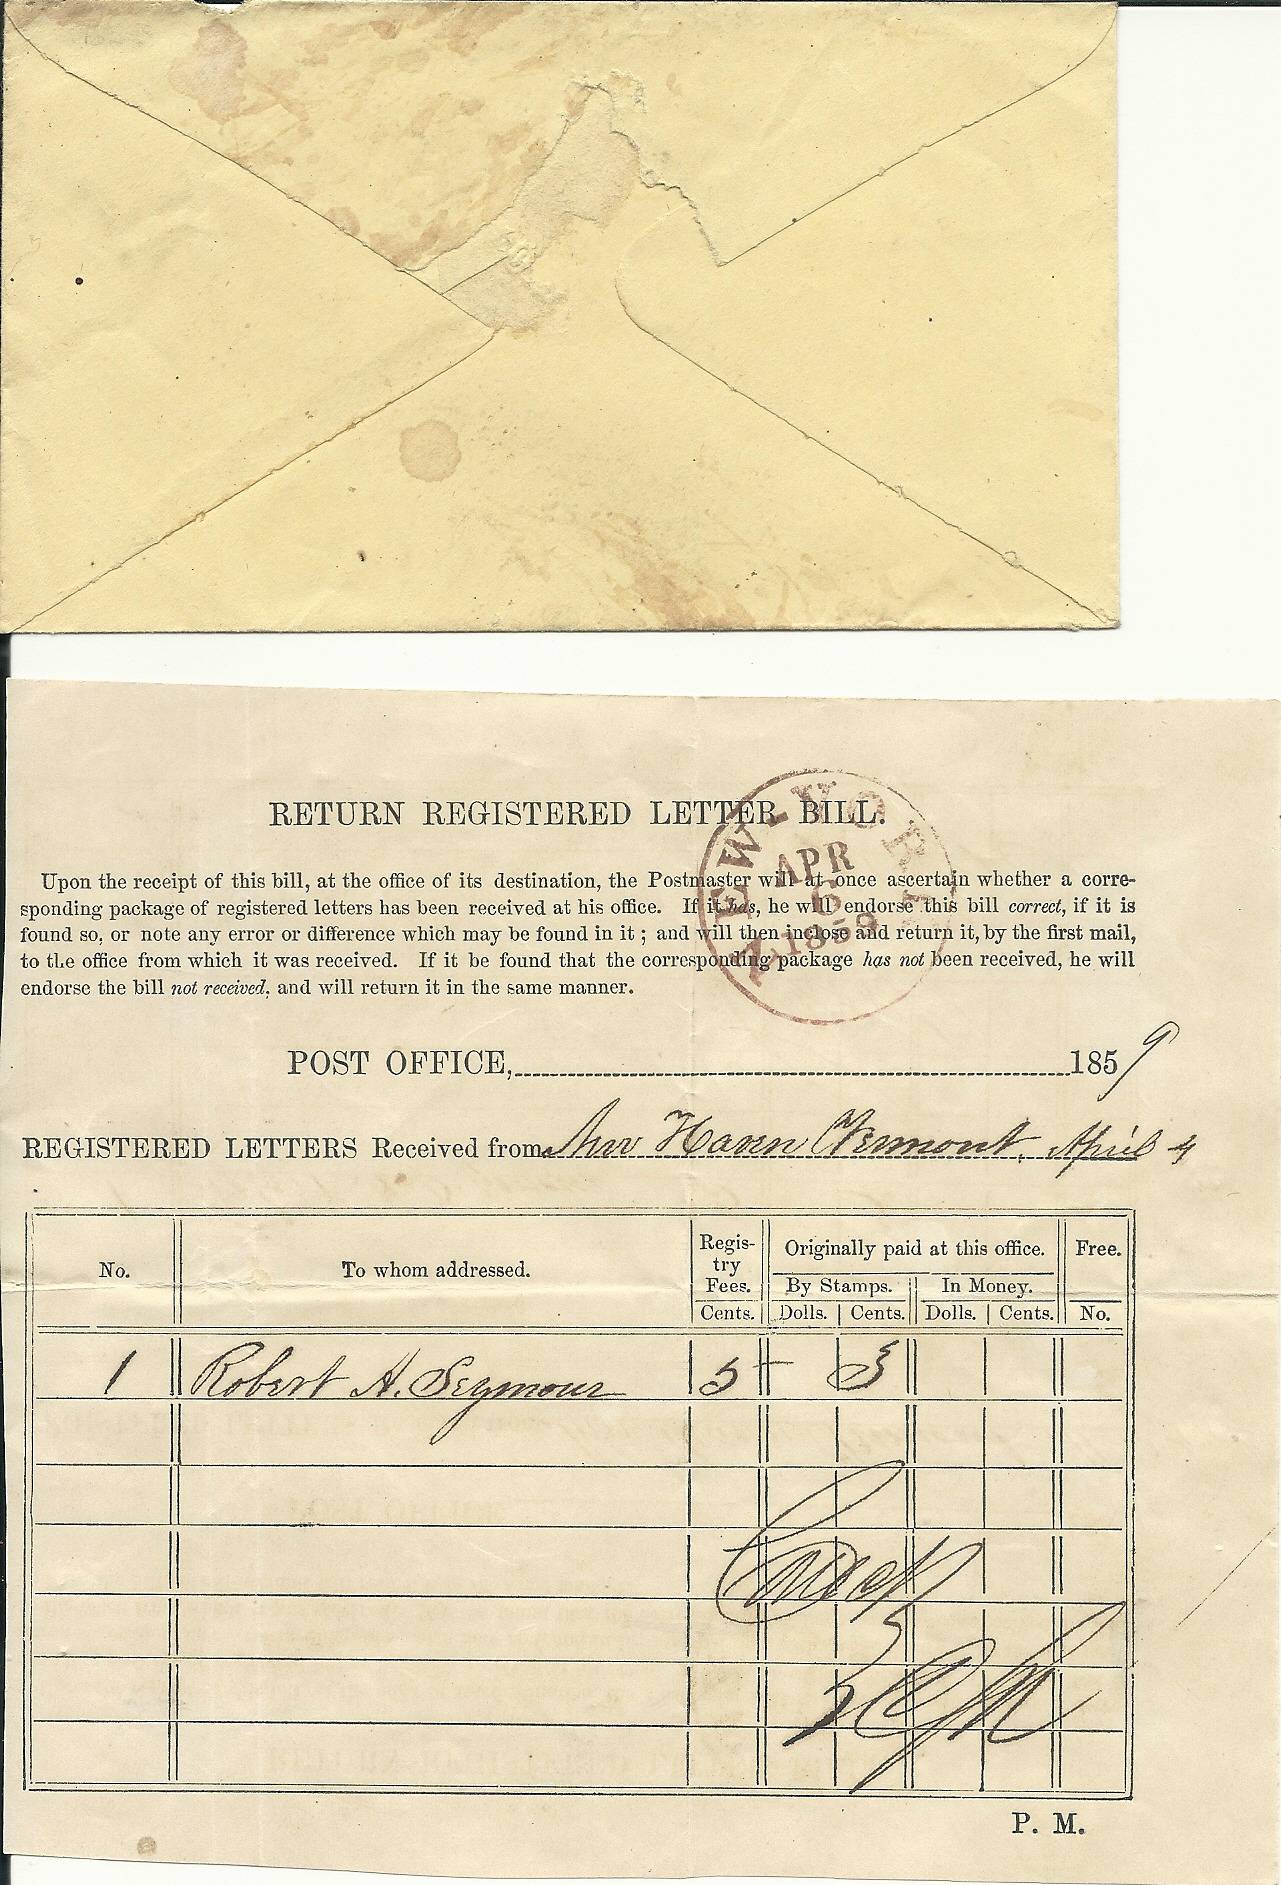 RETURN REGISTERED LETTER BILL.
NEW-YORK
APR
6
1859
Upon the receipt of this bill, at the office of its destination, the Postmaster will at once ascertain whether a corre-
sponding package of registered letters has been received at his office. If it has, he will endorse this bill correct, if it is
found so, or note any error or difference which may be found in it; and will then inclose and return it, by the first mail,
to the office from which it was received. If it be found that the corresponding package has not been received, he will
endorse the bill not received, and will return it in the same manner.
POST OFFICE, 1859
REGISTERED LETTERS Received from New Haven Vermont. April 4
No. To whom addressed. Regis-try Fees. Originally paid at this office. Free.
By Stamps. In Money.
Cents. Dolls. Cents. Dolls. Cents. No.
1 Robert A. Seymour 5 - 3
P. M.